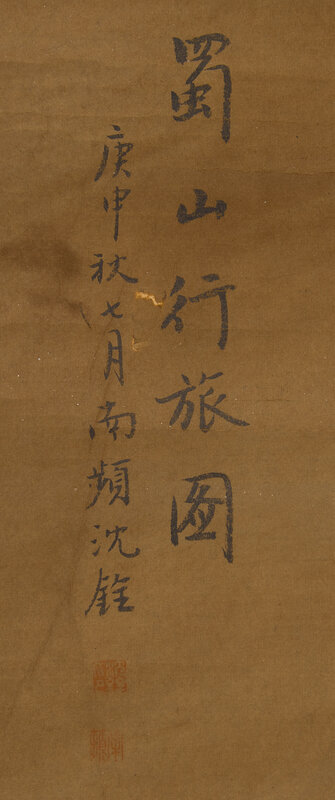 蜀山行旅图
庚申秋七月南頻沈銓